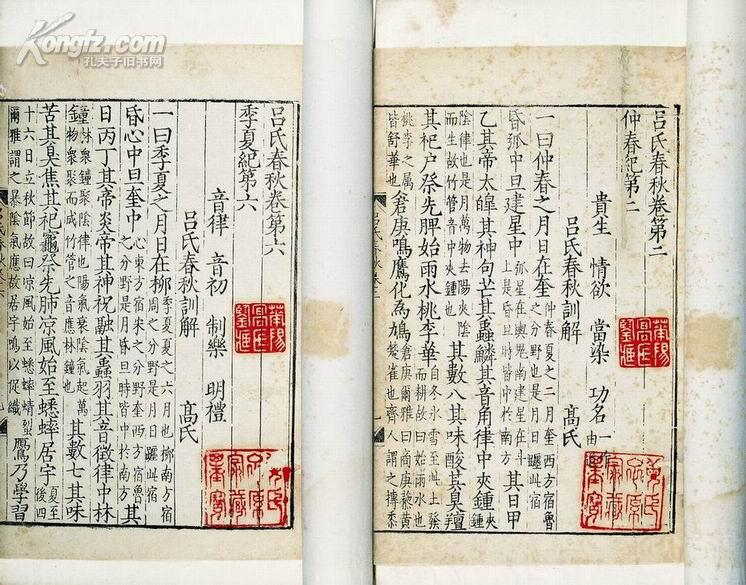 Kongfz.com
孔夫子旧书网
呂氏春秋卷第二
仲春紀第二
貴生 情欲 當染 功名一作由道
呂氏春秋訓解 高氏
一曰仲春之月日在奎仲春夏之二月奎西方宿魯之分野也是月日躔此宿
昏弧中旦建星中弧星在輿鬼南建星在斗上是月昏旦時皆中於南方其日甲
乙其帝太皞其神句芒其蟲鱗其音角律中夾鍾
陰律也是月萬物去陽夾陰而生故竹管音中夾鍾也其數八其味酸其臭羶
其祀戶祭先脾始雨水桃李華自冬冰雪至此上發而耕故曰始雨水也
桃李之屬皆舒華也倉庚鳴鷹化為鳩
呂氏春秋卷第六
季夏紀第六
音律 音初 制樂 明禮
呂氏春秋訓解 高氏
一曰季夏之月日在柳季夏夏之六月也柳南方宿周之分野是月日躔此宿
昏心中旦奎中心東方宿宋之分野奎西方宿魯之分野是月昏旦時皆中於南方其
日丙丁其帝炎帝其神祝融其蟲羽其音徵律中林
鍾林衆鍾聚陰律也陽氣衰陰氣起萬物衆聚而成竹管之音應林鍾也其數七其味
苦其臭焦其祀竈祭先肺涼風始至蟋蟀居宇夏至後四
十六日立秋節故曰涼風始至蟋蟀蜻蛚爾雅謂之蛬陰氣應故居宇鳴以促織鷹乃學習